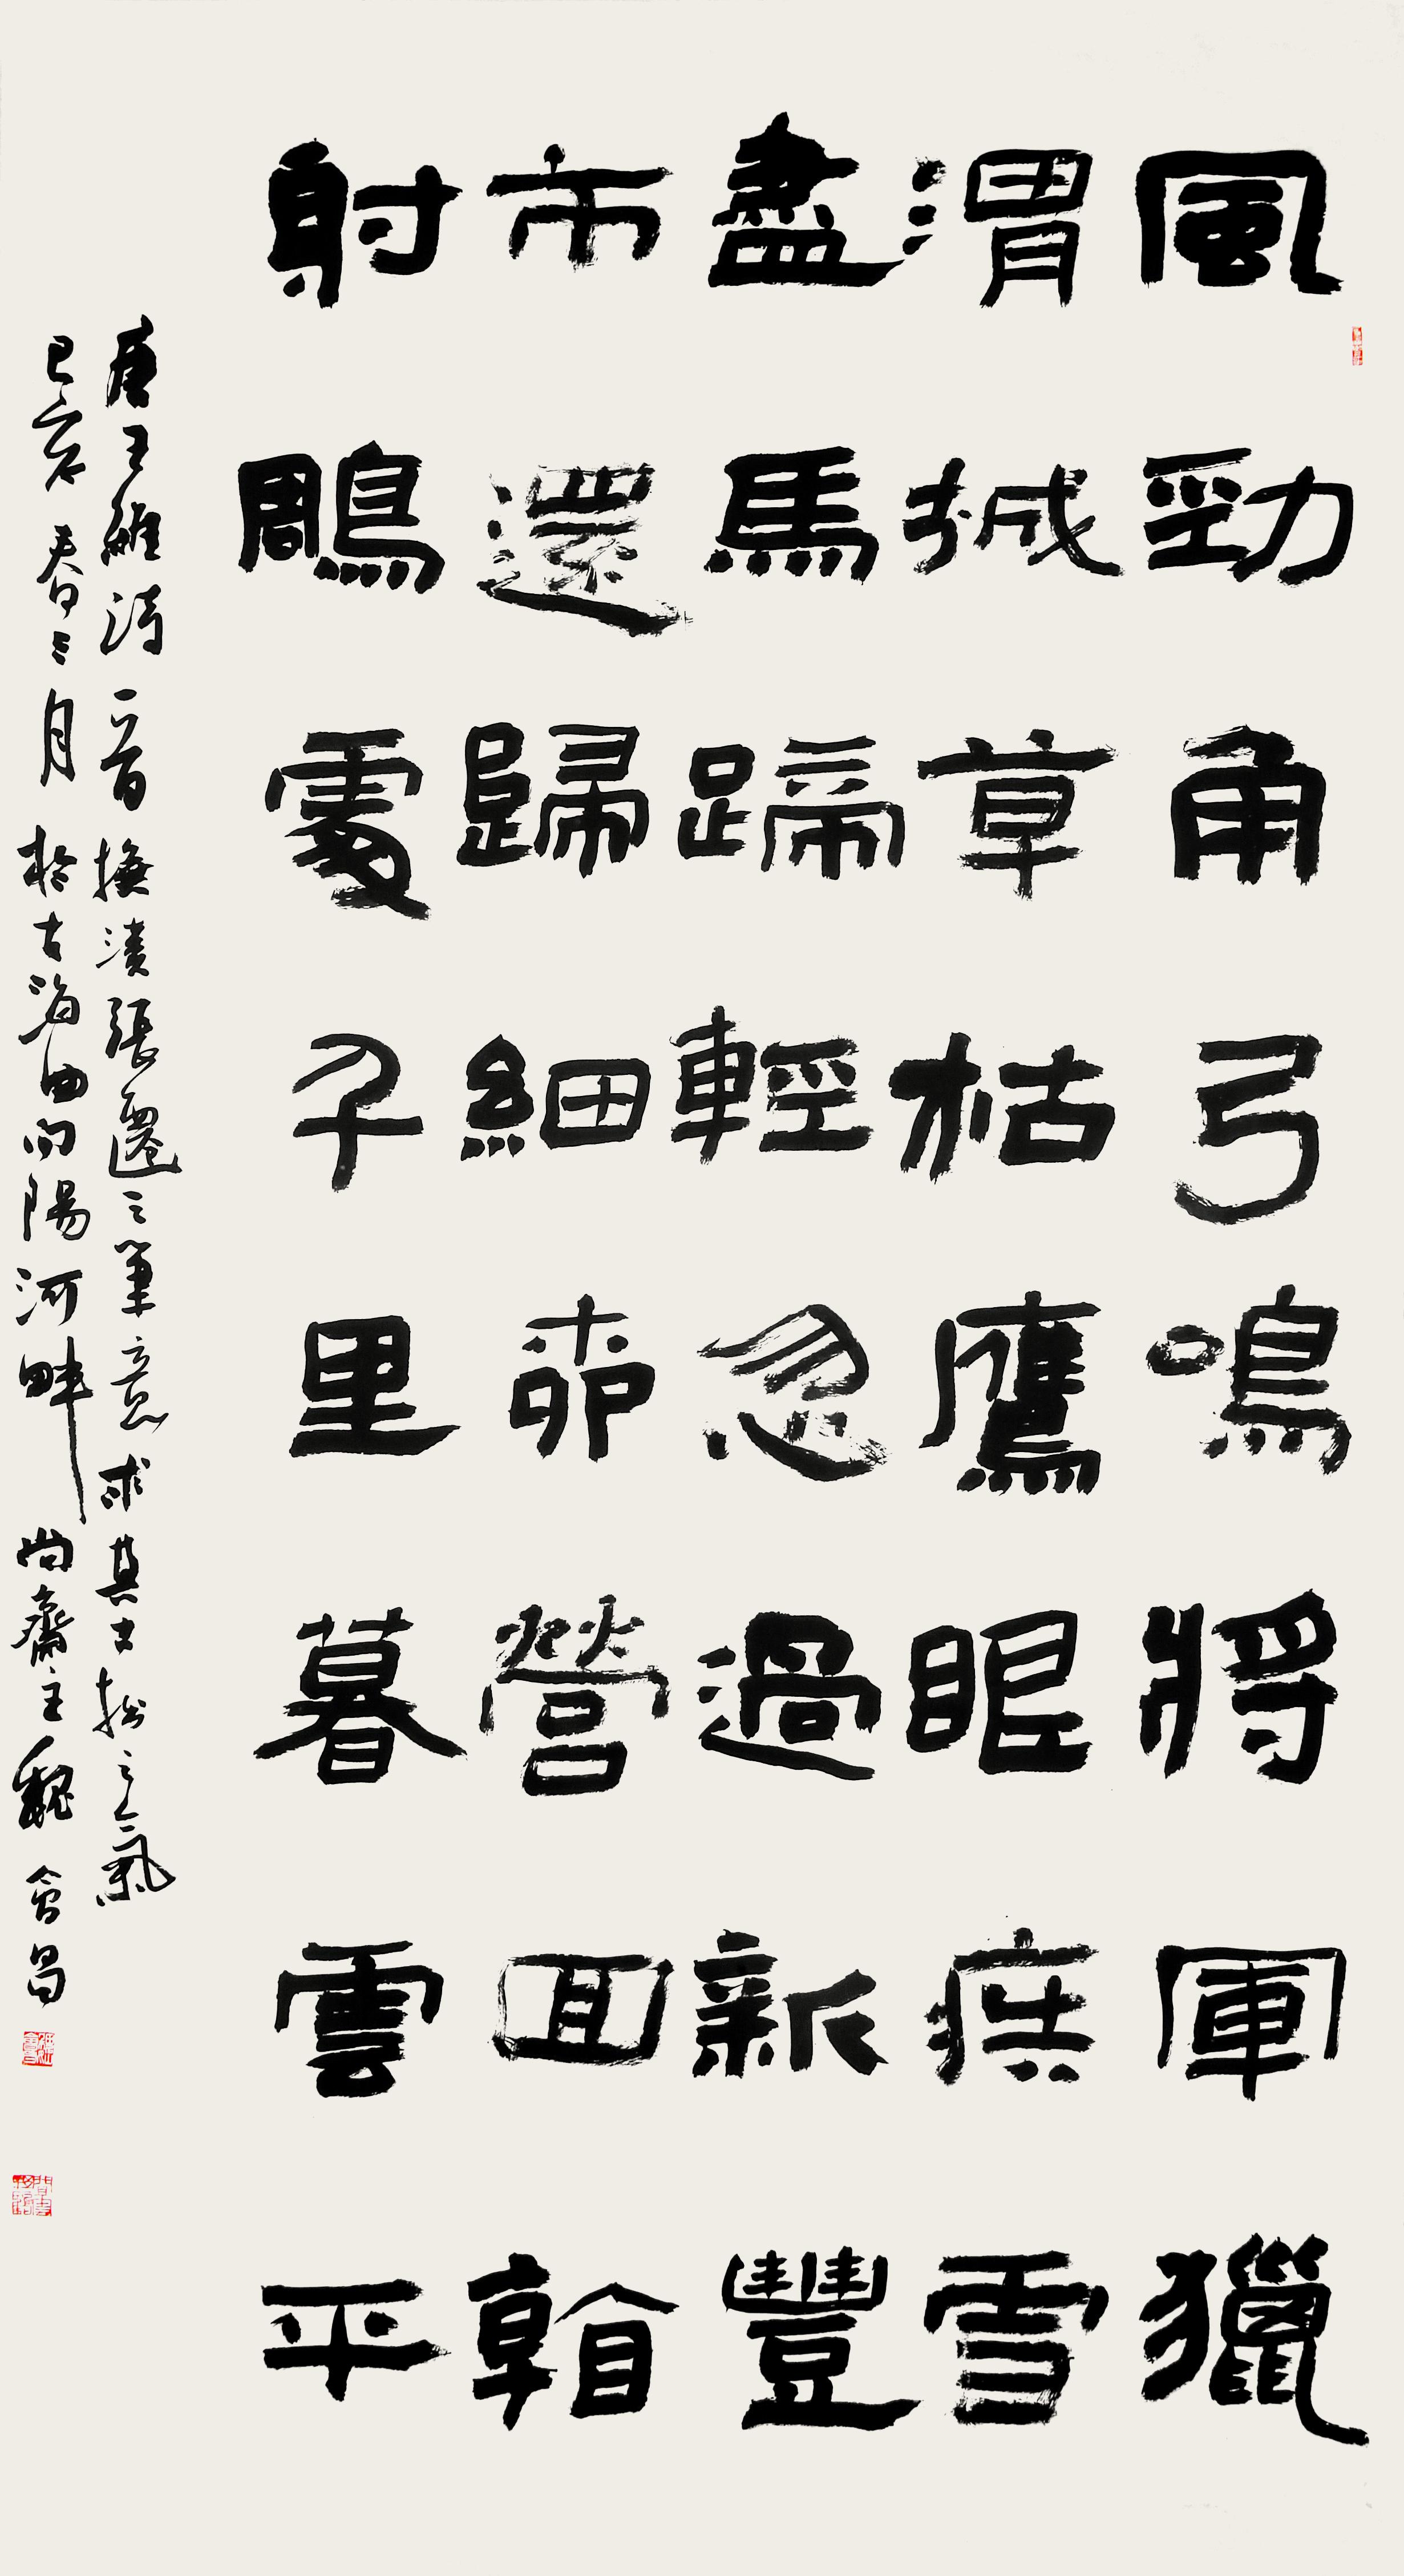 風勁角弓鳴將軍獵
渭城草枯鷹眼疾雪
盡馬蹄輕忽過新豐
市還歸細柳營回看
射鵰處千里暮雲平
唐王維詩一首撫漢張遷之筆意求其古拙之氣
己亥春三月於古海曲向陽河畔尚齋主魏會昌